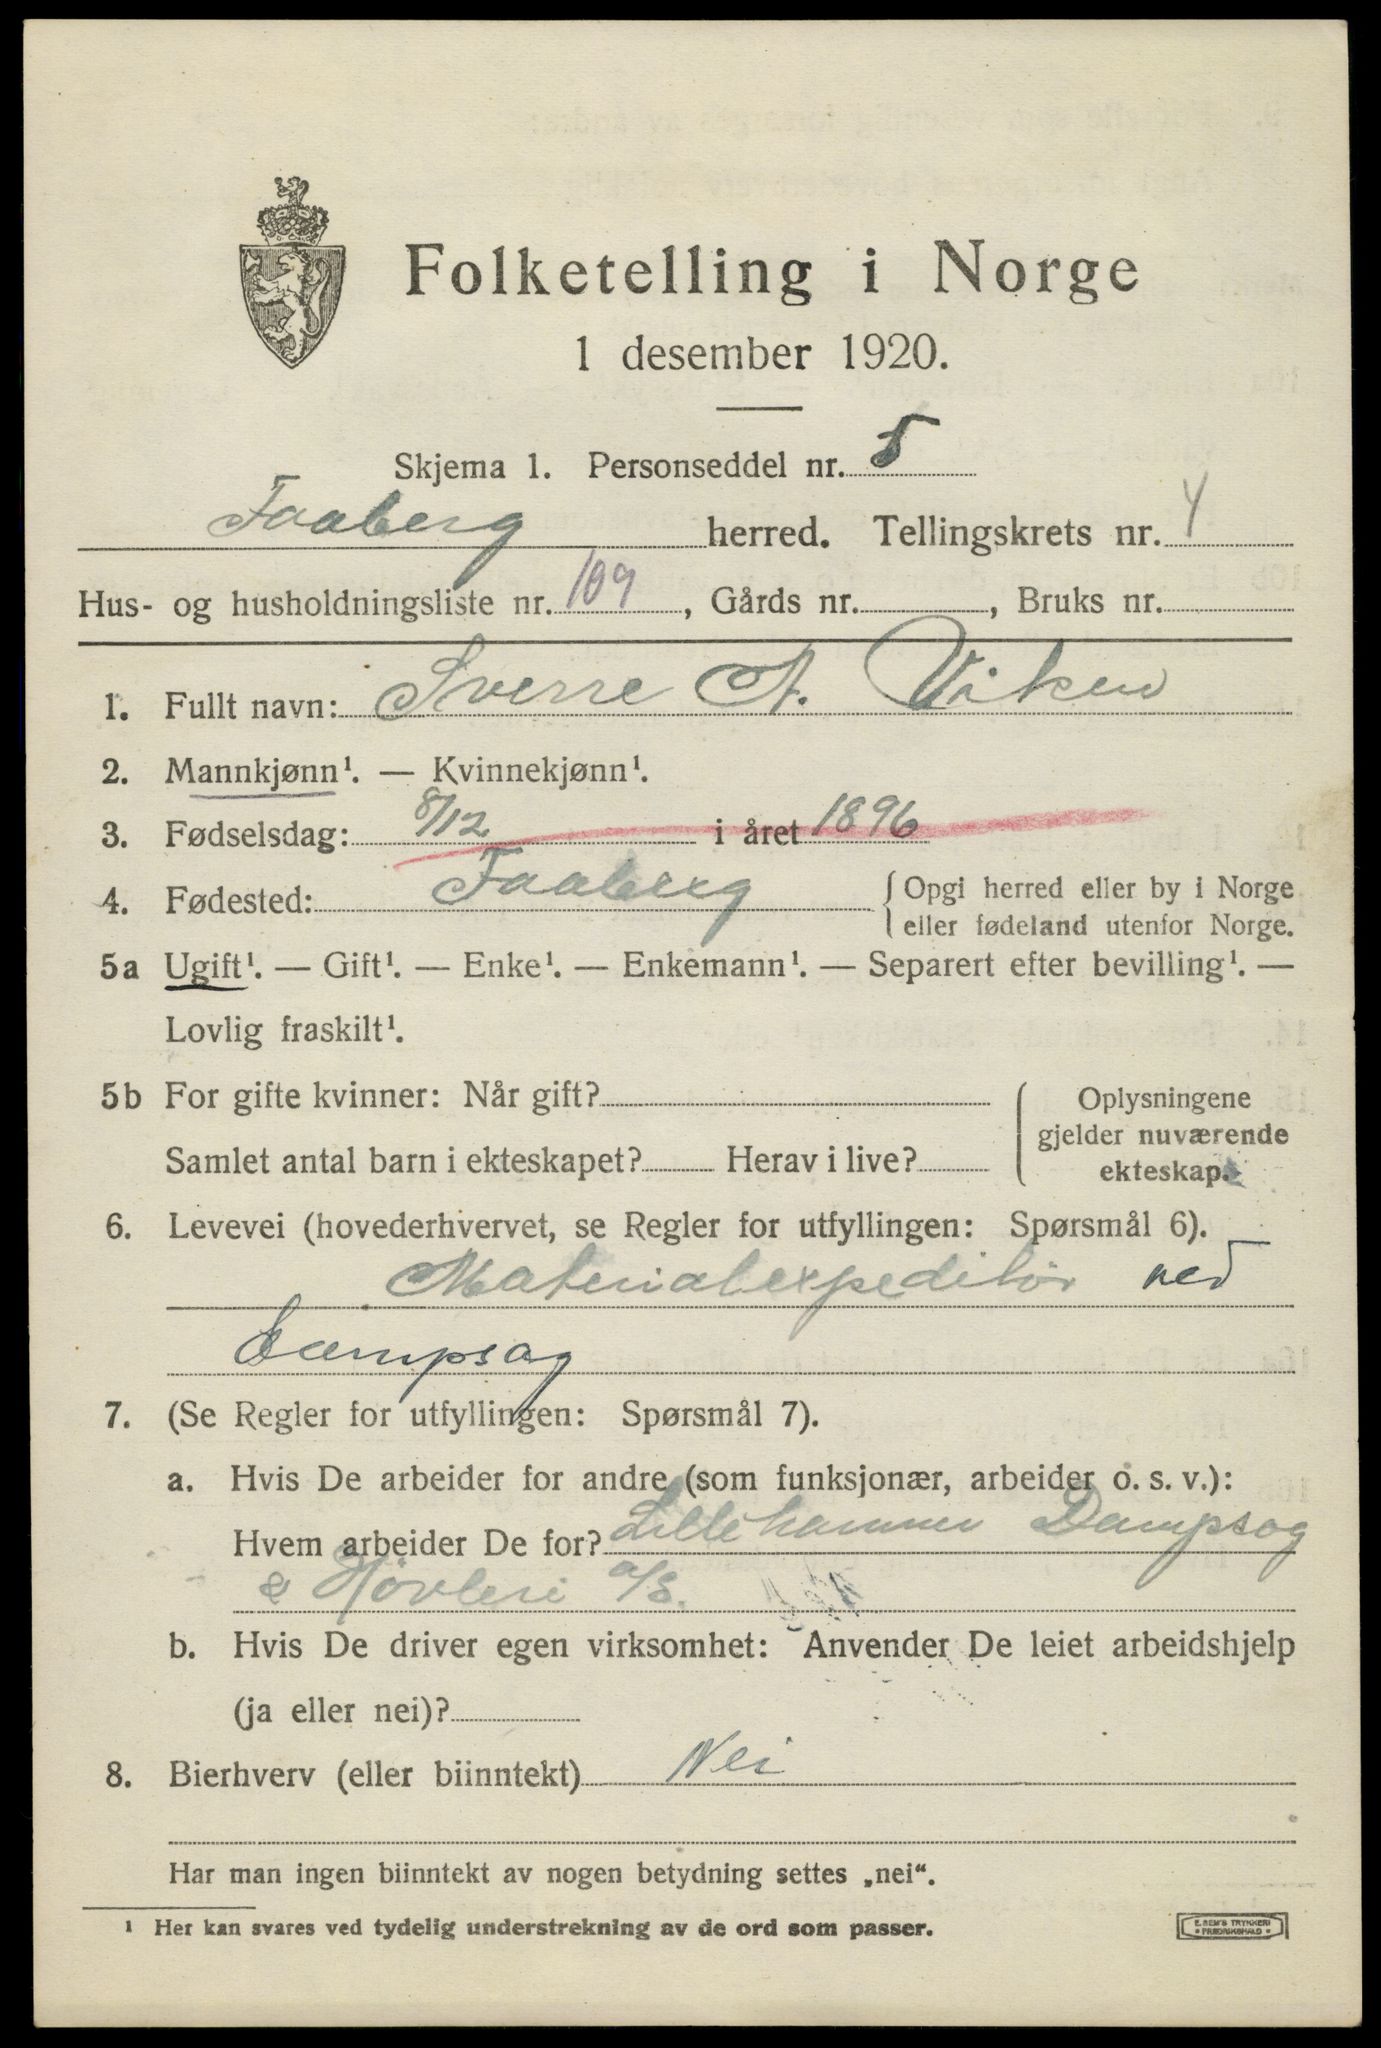 Folketelling i Norge
1 desember 1920.
Skjema 1. Personseddel nr. 5
Faaberg herred. Tellingskrets nr. 4
Hus- og husholdningsliste nr. 109, Gårds nr. , Bruks nr.
1. Fullt navn: Sverre A. Viken
2. Mannkjønn¹. — Kvinnekjønn¹.
3. Fødselsdag: 8/12 i året 1896
4. Fødested: Faaberg { Opgi herred eller by i Norge
eller fødeland utenfor Norge.
5a Ugift¹. — Gift¹. — Enke¹. — Enkemann¹. — Separert efter bevilling¹. —
Lovlig fraskilt¹.
5b For gifte kvinner: Når gift?
Samlet antal barn i ekteskapet? Herav i live?
Oplysningene
gjelder nuværende
ekteskap.
6. Levevei (hovederhvervet, se Regler for utfyllingen: Spørsmål 6).
Materialexpeditör ved
Dampsag
7. (Se Regler for utfyllingen: Spørsmål 7).
a. Hvis De arbeider for andre (som funksjonær, arbeider o. s. v.):
Hvem arbeider De for? Lillehammer Dampsag
& Hövleri A/S.
b. Hvis De driver egen virksomhet: Anvender De leiet arbeidshjelp
(ja eller nei)?
8. Bierhverv (eller biinntekt) Nei
Har man ingen biinntekt av nogen betydning settes „nei“.
¹ Her kan svares ved tydelig understrekning av de ord som passer.
E. SEM'S TRYKKERI
• FREDRIKSHALD •